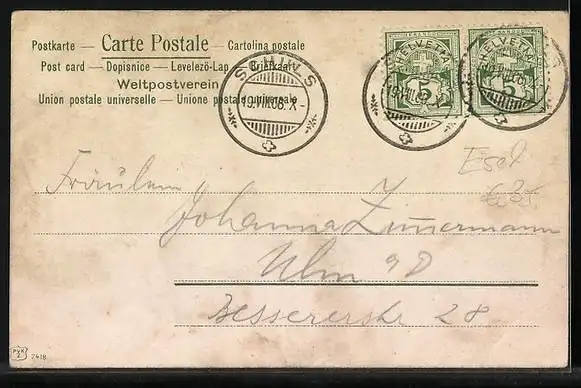 Postkarte — Carte Postale — Cartolina postale
Post card — Dopisnice — Levelező-Lap — Briefkaart
Weltpostverein
Union postale universelle — Unione postale universale
SCHULS
19.VIII.06.X-
HELVETIA
5
HELVETIA
5
Esel
Fräulein
Johanna Zimmermann
Ulm a/D
Bessererstr 28
7418